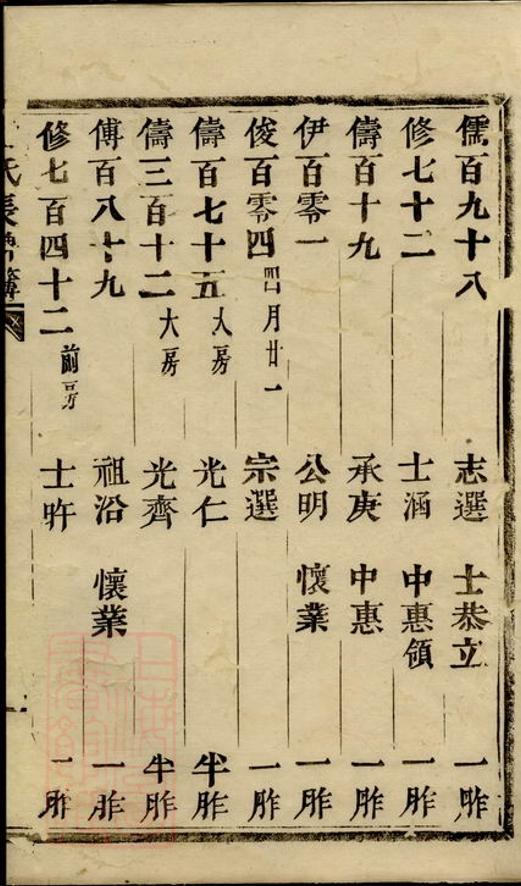 儒百九十八 志選 士恭立 一胙
修七十二 士涵 中惠領 一胙
儔百十九 承庚 中惠 一胙
伊百零一 公明 懷業 一胙
俊百零四 四月廿一 宗選 一胙
儔百七十五 大房 光仁 半胙
儔三百十二 大房 光齊 半胙
傅百八十九 祖沿 懷業 一胙
修七百四十二 前房 士昨 一胙
氏長
簿
一